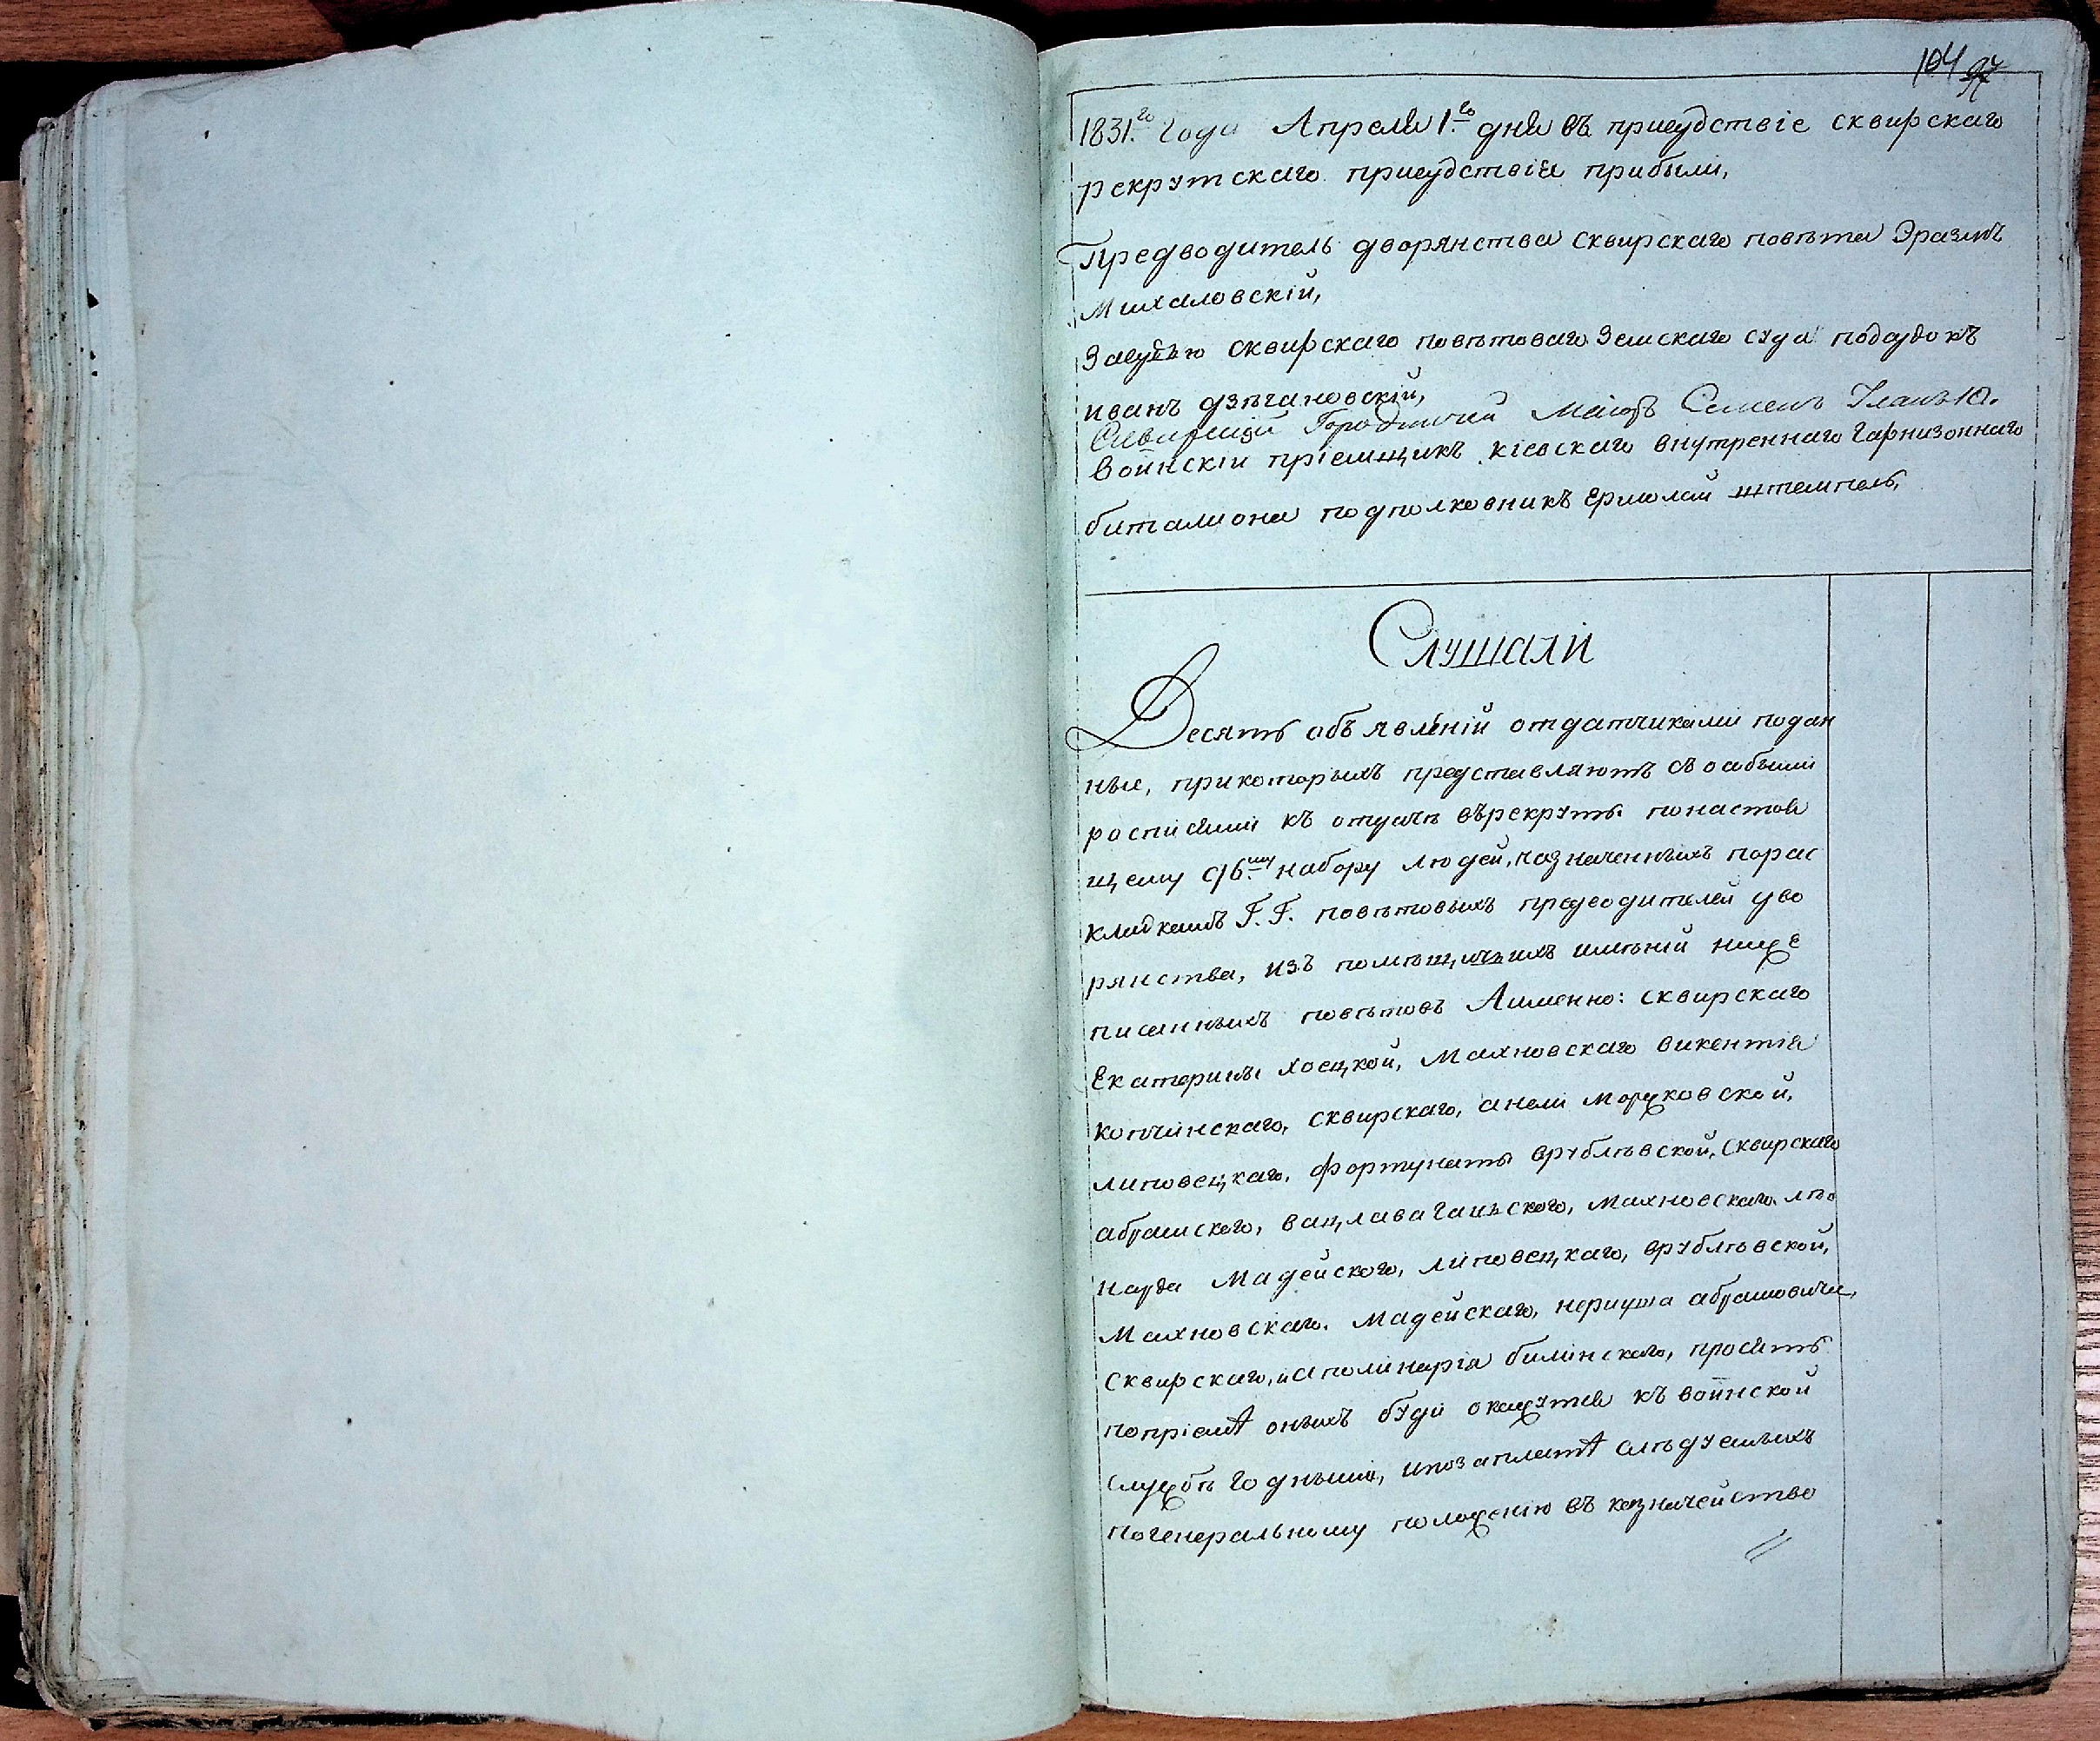 104 97
1831.го года Апреля 1.го дня въ присудствіе сквирскаго
рекрутскаго присудствія прибыли,
Предводитель дворянства сквирскаго повѣта Эразмъ
Михаловскій,
Засудью сквирскаго повѣтоваго Земскаго суда подсудокъ
иванъ дзѣгановскій,
Сквирскій Городничій Маіоръ Семенъ
Воинскій пріемщикъ кіевскаго внутреннаго гарнизоннаго
баталиона подполковникъ Ермолай штемпель,
Слушали
Десять объявленій отдатчиками подан
ные, прикоторыхъ представляютъ съ особыми
росписями къ отдачѣ врекруты понастоя
щему 96му набору людей, назначенныхъ порас
кладкамъ Г.Г. повѣтовыхъ предводителей дво
рянства, изъ помѣщичьихъ имѣній ниже
писанныхъ повѣтовъ Аименно: сквирскаго
Екатерины хоецкой, Махновскаго викентія
копчинскаго, сквирскаго, анели моржковской,
липовецкаго, фортунаты врублѣвской, Сквирскаго
абрамского, вацлава ганьского, махновскаго лѣо
нарда Мадейского, липовецкаго, врублѣвской,
Махновскаго. Мадейскаго, абрамовича,
Сквирскаго, и аполинарія билинскаго, просятъ
попріемѣ оныхъ буди окажутся къ воинской
службѣ годными, ипозаплатѣ слѣдуемыхъ
погенеральному положенію въ казначейство